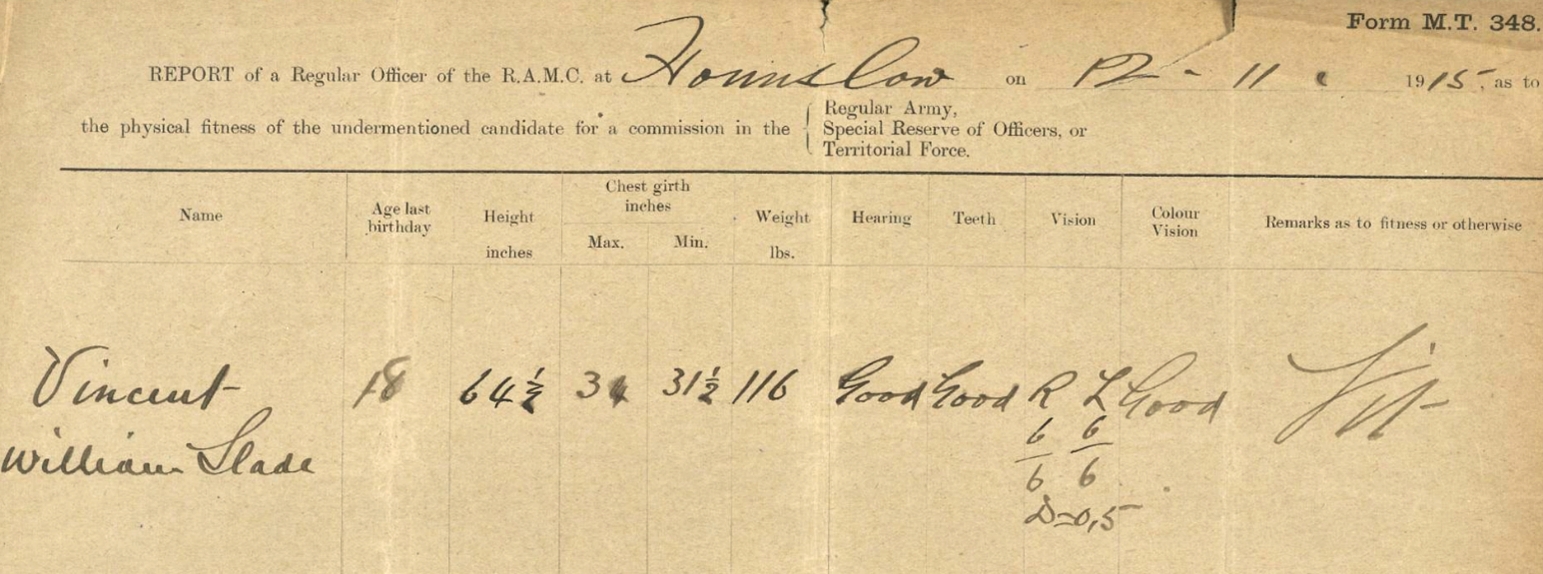 Form M.T. 348.
REPORT of a Regular Officer of the R.A.M.C. at Hounslow on 12 - 11 1915, as to
the physical fitness of the undermentioned candidate for a commission in the { Regular Army,
Special Reserve of Officers, or
Territorial Force.
Name Age last birthday Height inches Chest girth inches Max. Min. Weight lbs. Hearing Teeth Vision Colour Vision Remarks as to fitness or otherwise
Vincent 18 64 1/2 34 31 1/2 116 Good Good R L Good Fit
William Slade 6/6 6/6
D=0,5